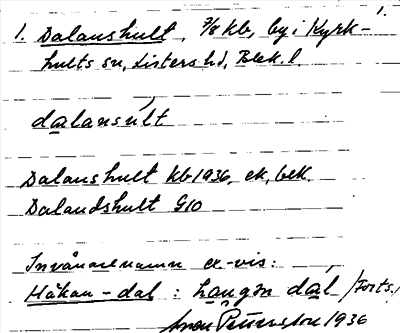 1.
1. Dalanshult, 3/8 kb, by i Kyrk-
hults sn, Listers hd, Blek. l.
dalansult
Dalanshult kb 1936, ek, bek.
Dalandshult G10
Invånarenamn ex-vis:
Håkan-dal : hangn dal /Forts./
Sven Petersson 1936